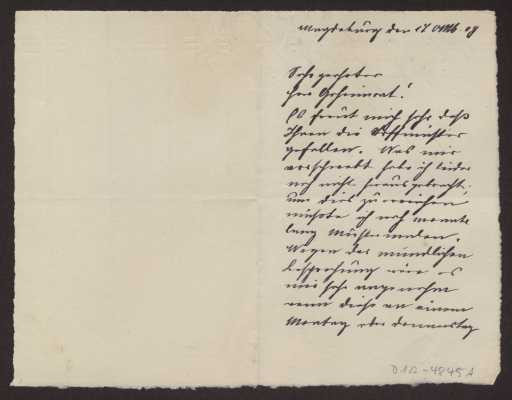 Magdeburg den 17 Okt. 09
Sehr geehrter
Herr Geheimrat!
Es freut mich sehr daß
Ihnen die Stoffmuster
gefallen. Was mir
vorschwebt habe ich leider
noch nicht herausgebracht.
um dies zu erreichen
müßte ich noch monate
lang Muster malen.
Wegen der mündlichen
besprechung wäre es
mir sehr angenehm
wenn diese an einem
Montag oder Donnerstag
D 12-4845 A